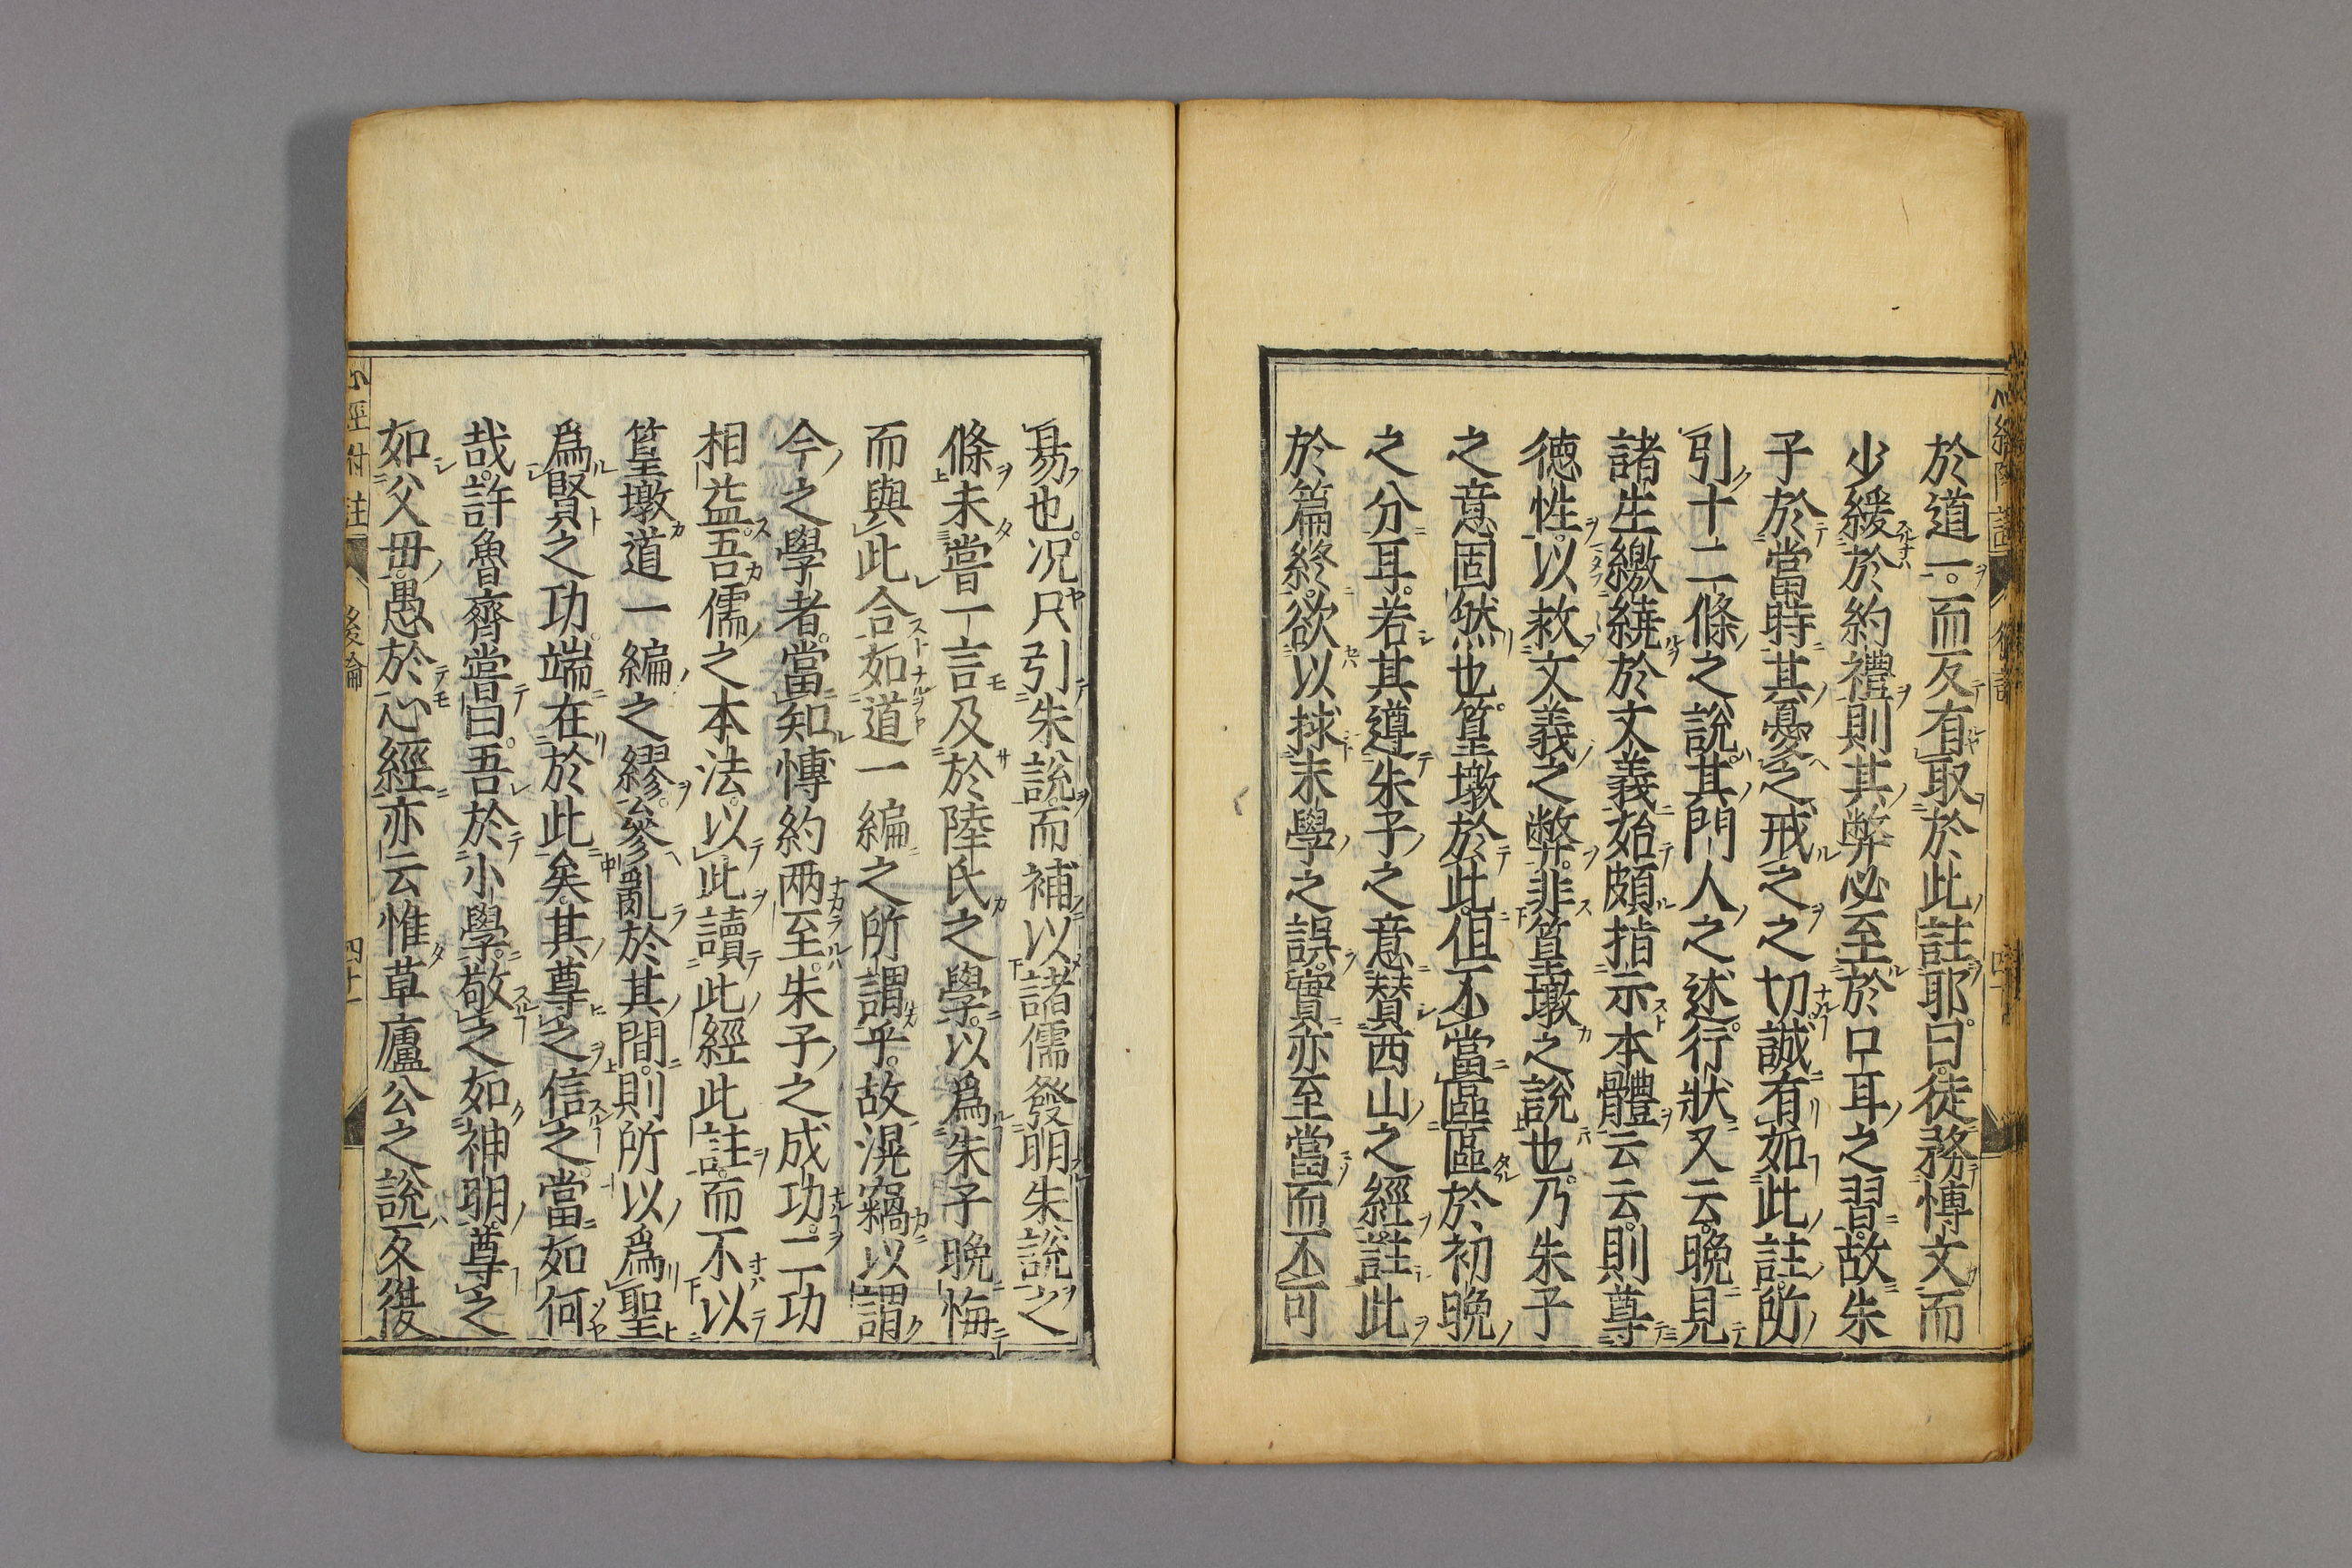 於道一。而反有取於此註耶。曰。徒務博文而
少緩於約禮則其弊必至於口耳之習。故朱
子於當時其憂之戒之之切誠有如此註所
引十二條之說。其門人之述行狀又云。晚見
諸生繳繞於文義始頗指示本體云云。則尊
徳性。以救文義之弊。非篁墩之說也。乃朱子
之意固然也。篁墩於此。但不當區區於初晚
之分耳。若其遵朱子之意贊西山之經註此
於篇終。欲以捄末學之誤。實亦至當而不可
易也。况只引朱說。而補以諸儒發明朱說之
條未嘗一言及於陸氏之學。以爲朱子晚悔
而與此合如道一編之所謂乎。故滉竊以謂
今之學者。當知博約兩至。朱子之成功。二功
相益。吾儒之本法。以此讀此經此註。而不以
篁墩道一編之繆。參亂於其間。則所以爲聖
爲賢之功。端在於此矣。其尊之信之。當如何
哉。許魯齊嘗曰。吾於小學。敬之如神明。尊之
如父母。愚於心經亦云惟草廬公之說反復
心經附註 後論 四十
心經附註 後論 四十一